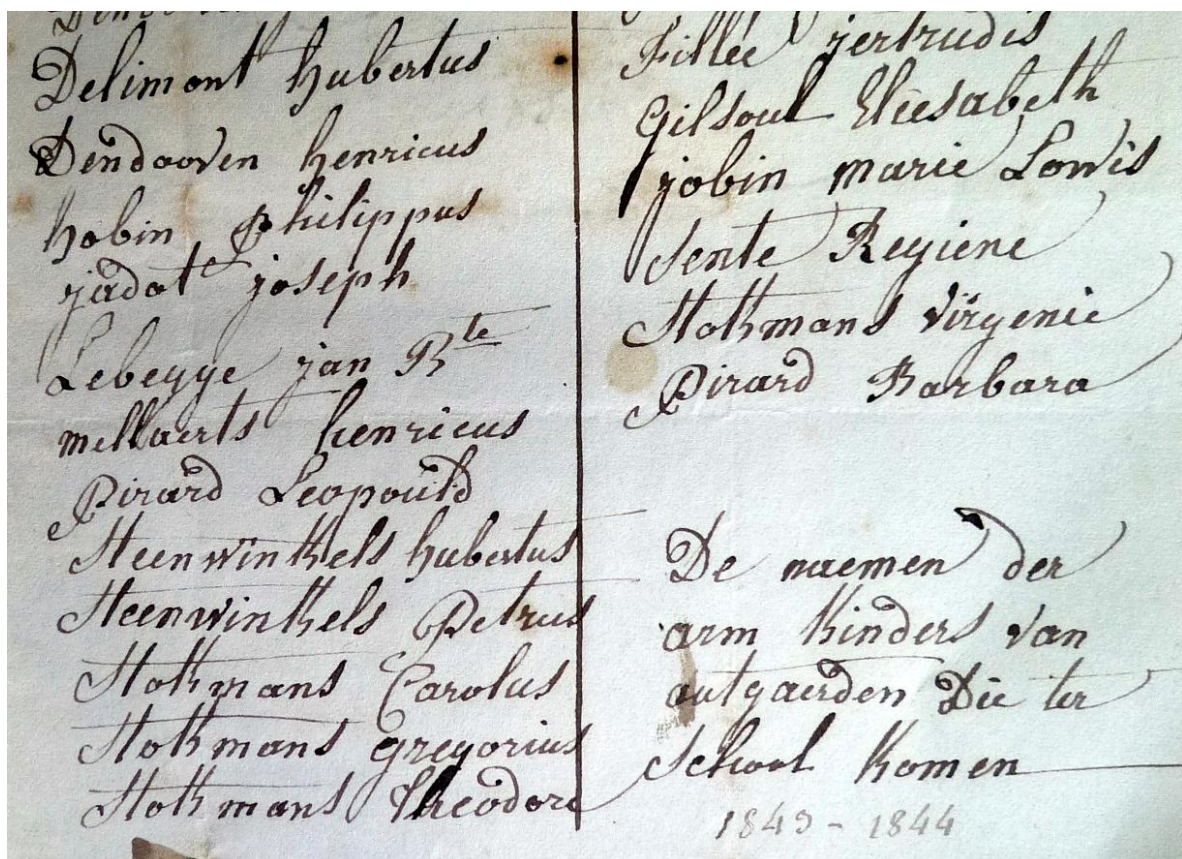 Delimont hubertus
Dendooven henricus
hobin philippus
jadot joseph
Lebegge jan Bte
mellaerts henricus
Pirard Leopould
Steenwinkels hubertus
Steenwinkels Petrus
Stokmans Carolus
Stokmans gregorius
Stokmans Theodore
Fillée jertrudis
gilsoul Eliesabeth
jobin marie Lowis
Sente Regiene
Stokmans virgenie
Pirard Barbara
De naemen der
arm kinders van
autgaerden Die ter
School komen
1843 - 1844